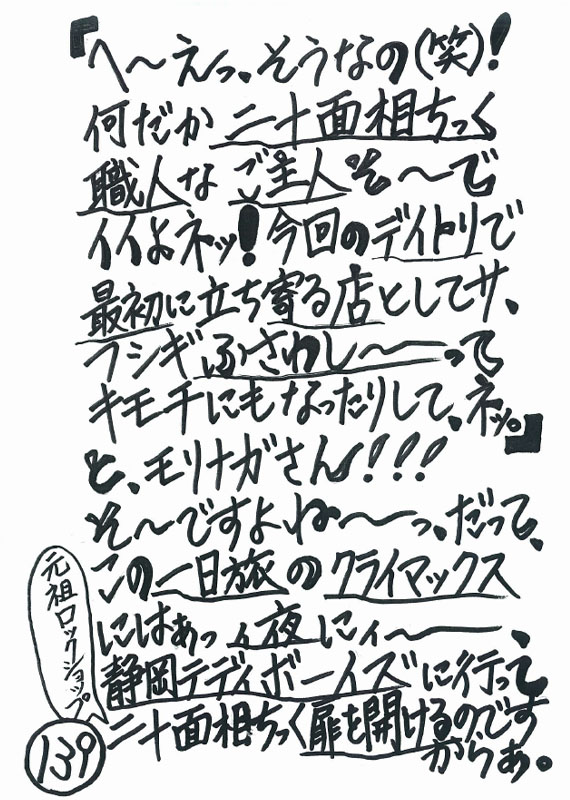 『へ〜えっ、そうなの(笑)!
何だか二十面相ちっく
職人なご主人そ〜で
イイよネッ!今回のデイトリで
最初に立ち寄る店としてサ、
フシギふさわし〜〜って
キモチにもなったりして、ネッ。』
と、モリナガさん!!!
そ〜ですよね〜〜っ、だって、
この一日旅のクライマックス
にはあっィ夜にィ〜〜、
静岡テディボーイズに行って
二十面相ちっく扉を開けるのです
からぁ。
元祖ロックショップ
139